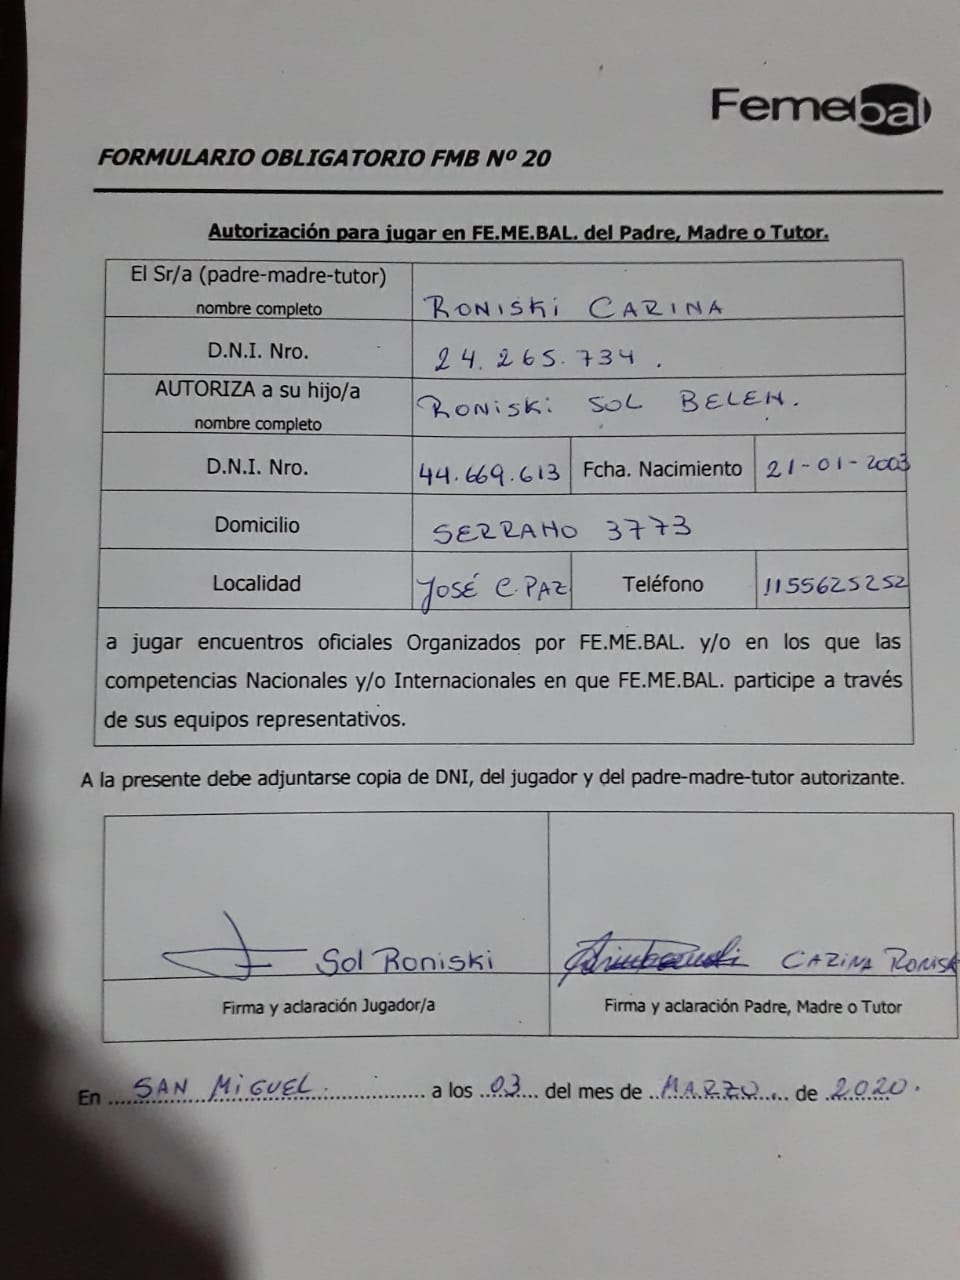 Femebal
FORMULARIO OBLIGATORIO FMB Nº 20
Autorización para jugar en FE.ME.BAL. del Padre, Madre o Tutor.
El Sr/a (padre-madre-tutor)
nombre completo
RONISKI CARINA
D.N.I. Nro.
24.265.734.
AUTORIZA a su hijo/a
nombre completo
RONISKI SOL BELEN.
D.N.I. Nro.
44.669.613
Fcha. Nacimiento
21-01-2003
Domicilio
SERRANO 3773
Localidad
JOSÉ C. PAZ
Teléfono
1155625252
a jugar encuentros oficiales Organizados por FE.ME.BAL. y/o en los que las
competencias Nacionales y/o Internacionales en que FE.ME.BAL. participe a través
de sus equipos representativos.
A la presente debe adjuntarse copia de DNI, del jugador y del padre-madre-tutor autorizante.
Sol Roniski
CARINA RONISK
Firma y aclaración Jugador/a
Firma y aclaración Padre, Madre o Tutor
En SAN MIGUEL. a los 03 del mes de MARZO de 2020.